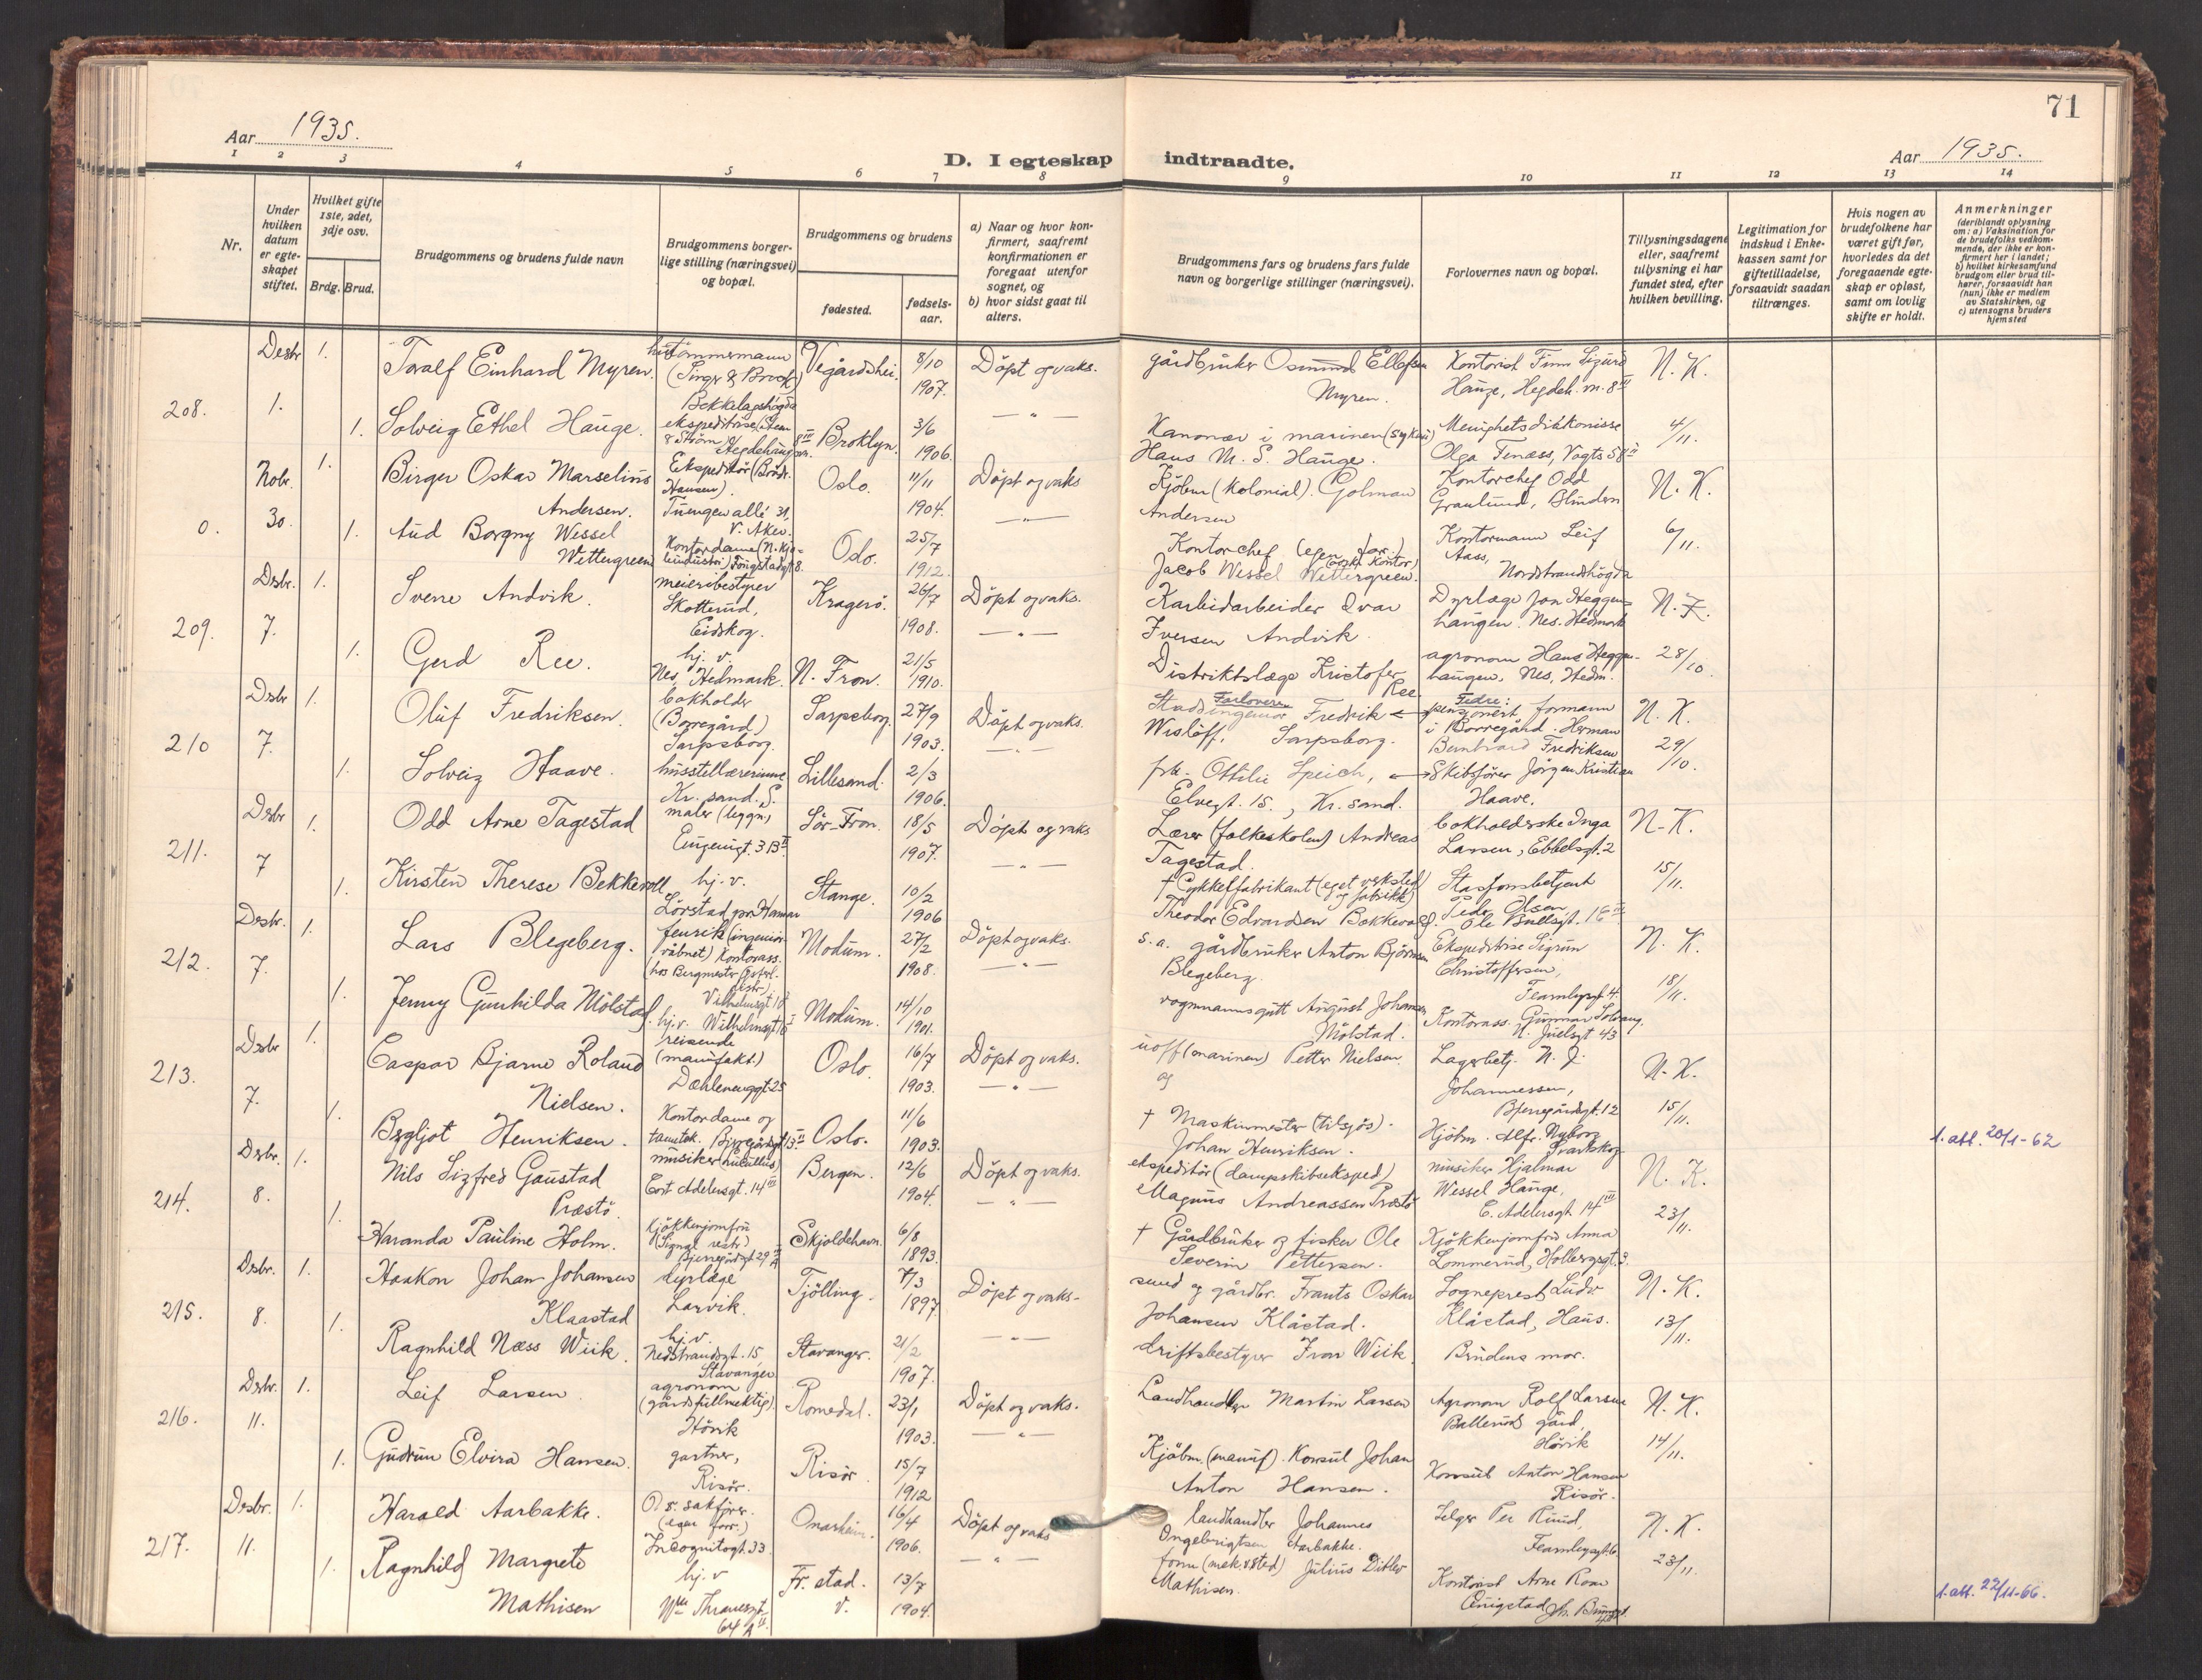 71
Aar 1935.
D. I egteskap indtraadte.
Aar 1935.
1 2 3 4 5 6 7 8 9 10 11 12 13 14
Nr.
Under hvilken datum er egteskapet stiftet.
Hvilket gifte 1ste, 2det, 3dje osv.
Brdg. Brud.
Brudgommens og brudens fulde navn
Brudgommens borgerlige stilling (næringsvei) og bopæl.
Brudgommens og brudens
fødested.
fødselsaar.
a) Naar og hvor konfirmert, saafremt konfirmationen er foregaat utenfor sognet, og
b) hvor sidst gaat til alters.
Brudgommens fars og brudens fars fulde navn og borgerlige stillinger (næringsvei).
Forlovernes navn og bopæl.
Tillysningsdagene eller, saafremt tillysning ei har fundet sted, efter hvilken bevilling.
Legitimation for indskud i Enkekassen samt for giftetilladelse, forsaavidt saadan tiltrænges.
Hvis nogen av brudefolkene har været gift før, hvorledes da det foregaaende egteskap er opløst, samt om lovlig skifte er holdt.
Anmerkninger
(deriblandt oplysning om: a) Vaksination for de brudefolks vedkommende, der ikke er konfirmert her i landet; b) hvilket kirkesamfund brudgom eller brud tilhører, forsaavidt han (hun) ikke er medlem av Statskirken, og c) utensogns bruders hjemsted
208.
Desbr 1.
1.
Toralf Einhard Myren.
tømmermann
Bekkelagshøgda
Vegårdshei.
8/10
1907.
Döpt og vaks.
gårdbruker Osmund Ellefsen
Myren.
Kontorist Finn Sigurd
Hauge, Hegdeh.v. 8 III
N. K.
4/11.
1.
Solveig Ethel Hauge.
ekspeditrise (Steen
& Ström)
Hegdehaugsv.
8 III
Broklyn.
3/6
1906.
— " —
Kanonær i marinen
Hans M. S. Hauge.
Menighetsdiakonisse
Olga Tenæss, Vogts
0.
Nobr. 30.
1.
Birger Oskar Marselius
Andersen.
Ekspeditör (Brödr.
Hansen).
Tuengen allé 31,
V. Aker.
Oslo.
11/11
1904.
Döpt og vaks
Kjöbm (Kolonial). Golman
Andersen
Kontorchef Odd
Graulund, Blindern
N. K.
6/11.
1.
Aud Borgny Wessel
Wettergreen
Kontordame
Oslo.
25/7
1912.
— " —
Kontorchef
Jacob Wessel Wettergreen.
Kontormann Leif
Aass,
Nordstrandshögda
209.
Desbr. 7.
1.
Sverre Andvik.
meieribestyrer
Skotterud,
Eidskog.
Kragerö.
26/7
1908.
Döpt og vaks.
Karbidarbeider Ivar
Iversen Andvik
Dyrlæge Jon Heggenhaugen.
Nes. Hedmark
N. K.
28/10.
1.
Gerd Ree.
hj. v.
Nes, Hedmark.
N. Fron.
21/5
1910.
— " —
Distriktslæge Kristofer
Ree
agronom Hans Heggenhaugen,
Nes, Hedm.
210
Dsbr 7.
1.
Oluf Fredriksen.
bokholder
(Borregård)
Sarpsborg.
Sarpsborg.
27/9
1903.
Döpt og vaks.
Forlovere
Stadsingeniør Fredrik
Wislöff, Sarpsborg.
Fedre:
pensjonert formann
i Borregård Herman
Bernhard Fredriksen
N. K.
29/10.
1.
Solveig Haave.
husstellærerinne
Kr. sand. S.
Lillesand.
2/3
1906.
— " —
frk. Ottilie Speich,
Elvegt. 15., Kr. sand.
Skibsfører Jörgen Kristian
Haave.
211.
Dsbr 7
1.
Odd Arne Tagestad
maler
Eugeniigt. 3 B II
Sör-Fron.
18/5
1907.
Döpt og vaks
Lærer (folkeskolen) Andreas
Tagestad.
bokholderske Inga
Larsen, Ebbelsgt. 2
N. K.
15/11.
1.
Kirsten Therese Bekkevoll
hj. v.
Lörstad pr. Hamar
Stange.
10/2
1906
— " —
† Cykkelfabrikant (eget verksted
og fabrikk)
Theodor Edvardsen Bekkevoll.
Stasjonsbetjent
Peder Olsen
Ole Bullsgt.
212.
Desbr. 7.
1.
Lars Blegeberg.
fenrik (ingeniörvåbnet)
Kontorass.
hos Bergmester
Vilhelmsgt
Modum.
27/2
1908.
Döpt og vaks.
s. a. gårdbruker Anton Björnsen
Blegeberg.
Ekspeditrise Sigrun
Christoffersen,
Fearnleysgt 4.
N. K.
18/11.
1.
Jenny Gunhilda Mölstad.
hj. v. Wilhelmsgt
Modum.
14/10
1901.
— " —
vognmannsgutt August Johansen
Mölstad.
Kontorass. Gunnar Solvang.
N. Juelsgt 43
213.
Dsbr 7.
1.
Caspar Bjarne Roland
Nielsen.
reisende
(manufakt.)
Dæhlenenggt. 25
Oslo.
16/7
1903.
Döpt og vaks.
uoff (marinen) Petter Nielsen
og
Lagerbetj. N. J.
Johannessen,
Bjerregårdsgt. 12
N. K.
15/11.
1.
Bergljot Henriksen.
Kontordame og
Oslo.
11/6
1903.
— " —
† Maskinmester (tilsjös).
Johan Henriksen.
Kjöbm. Alfr. Nyborg
Svartskog.
1. att. 20/1-62
214.
Dsbr. 8.
1.
Nils Sigfred Gaustad
Præstö.
musiker
Cort Adelersgt. 14 III
Bergen.
12/6
1904.
Döpt og vaks.
ekspeditör (dampskibseksped)
Magnus Andreassen Præstö
musiker Hjalmar
Wessel Hauge,
C. Adelersgt 14 III
N. K.
23/11.
1.
Haranda Pauline Holm.
Kjökkenjomfru
Bjerregårdsgt 29
Skjoldehavn.
6/8
1893.
— " —
† Gårdbruker og fisker Ole
Severin Pettersen.
Kjökkenjomfru Anna
Lommerud, Holbergsgt. 3.
215.
Dsbr. 8.
1.
Haakon Johan Johansen
Klaastad
dyrlæge
Larvik.
Tjölling.
7/3
1897
Döpt og vaks-
smed og gårdbr. Frants Oskar
Johansen Klåstad.
Sogneprest Ludv
Klåstad, Haus.
N. K.
13/11.
1.
Ragnhild Næss Wiik.
hj. v.
Nedstrandsgt. 15,
Stavanger
Stavanger.
21/2
1907.
— " —
driftsbestyrer Ivar Wiik.
Brudens mor.
216.
Dsbr. 11.
1.
Leif Larsen.
agronom
(gårdsfullmektig).
Hövik
Romedal.
23/1
1903.
Döpt og vaks.
Landhandler Martin Larsen
Agronom Rolf Larsen
Ballerud gård,
Hövik
N. K.
14/11.
1.
Gudrun Elvira Hansen.
gartner,
Risör.
Risör.
15/7
1912
— " —
Kjöbm. (manuf). Konsul Johan
Anton Hansen.
Konsul Anton Hansen
Risör.
217.
Desbr. 11.
1.
Harald Aarbakke.
O. r. sakförer.
(egen forr.)
Incognitogt. 33
Onarheim.
16/4
1906.
Döpt og vaks
landhandler Johannes
Ongebrigtsen Aarbakke.
Selger Per Ruud,
Fearnleysgt. 6.
N. K.
23/11.
1.
Ragnhild Margrete
Mathisen
hj. v
Mc Thranesgt
64 A II.
Fr. stad.
V.
13/7
1904.
— " —
form (mek. vksted) Julius Ditlev
Mathisen.
Kontorist Arne Roar
1. att. 22/11-66.